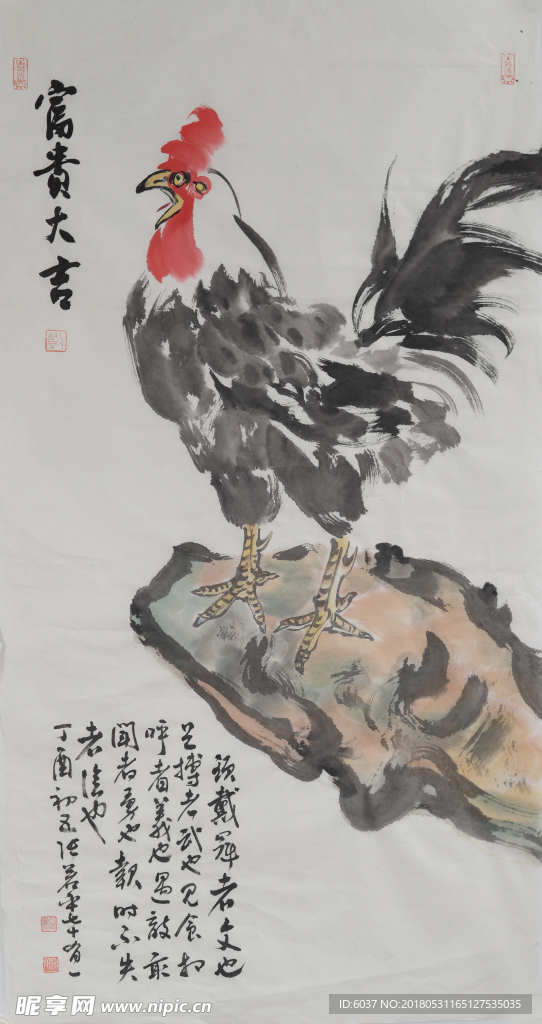 富貴大吉
頭戴冠者文也
足搏者武也見食相
呼者義也遇敵敢
闘者勇也報時不失
者信也
丁酉初五 若平七十有一
昵享网 www.nipic.cn
ID:6037 NO:20180531165127535035